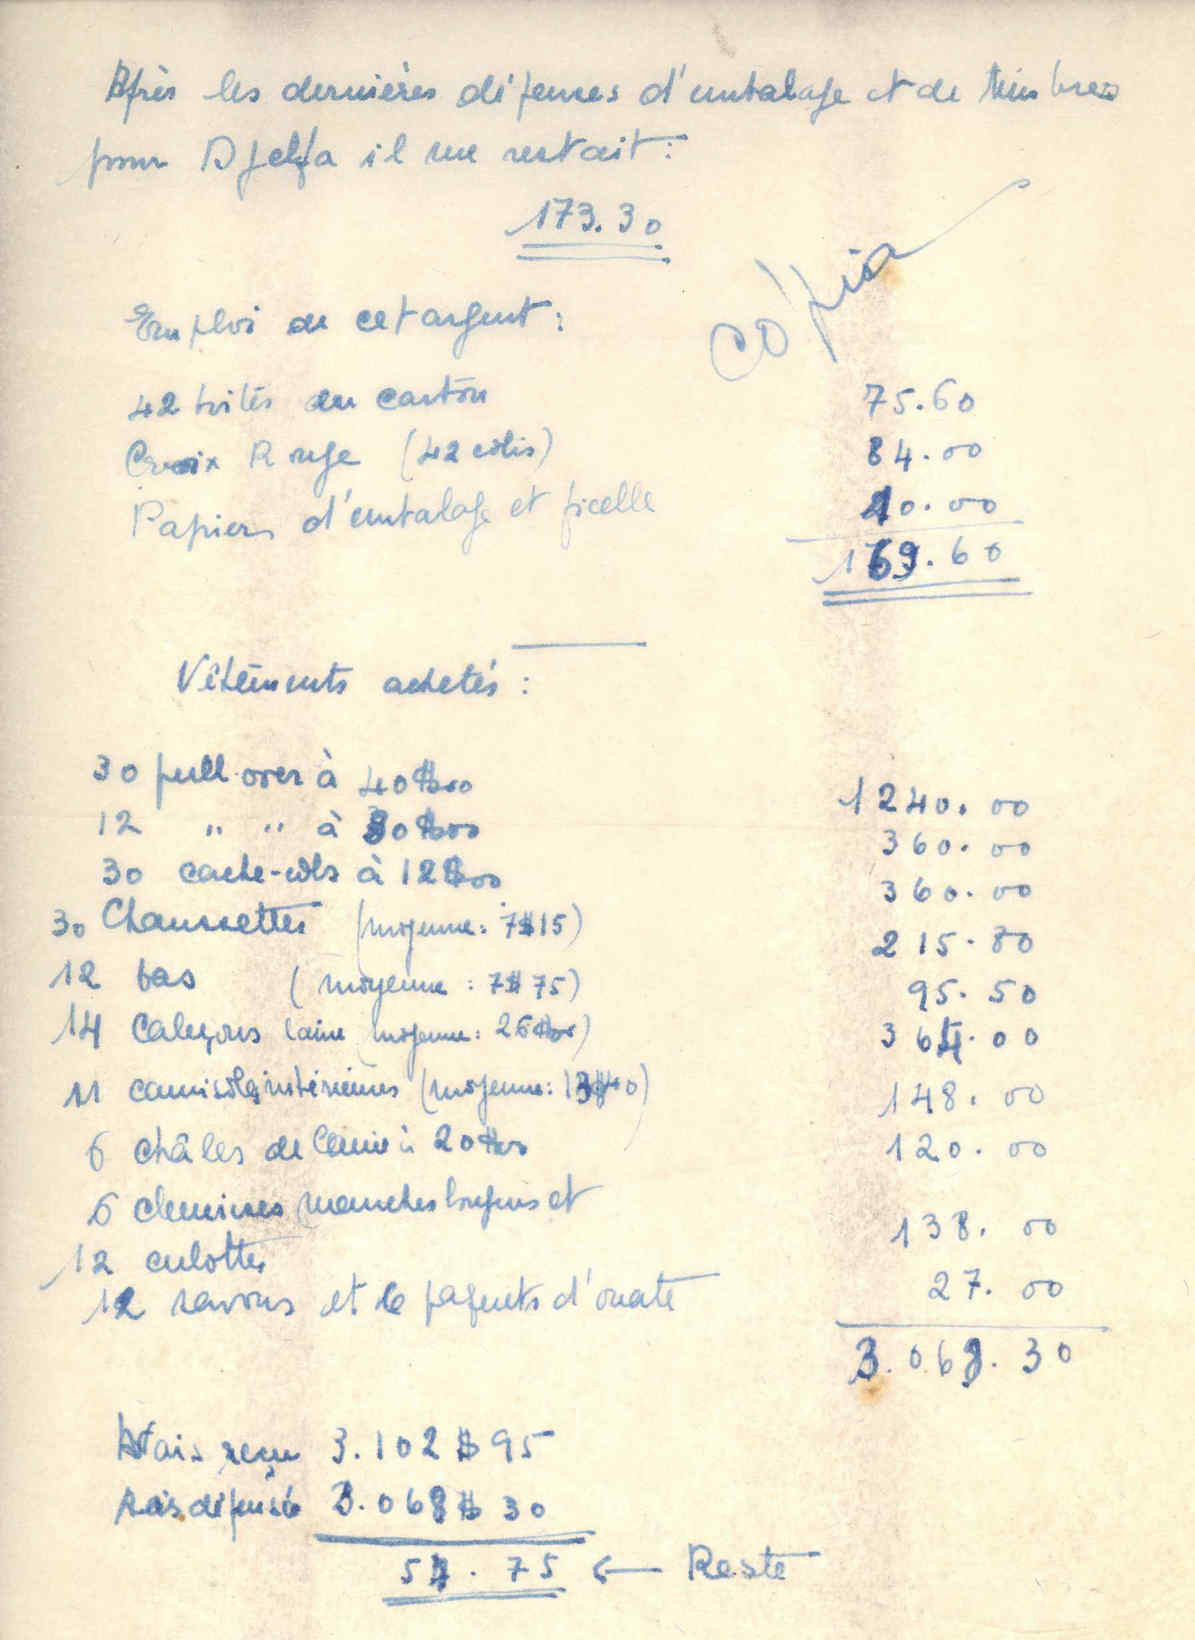 Après les dernières dépenses d'embalage et de timbres
pour Djelfa il me restait:
173.30
cópia
Emploi de cet argent:
42 boîtes en carton 75.60
Croix Rouge (42 colis) 84.00
Papiers d'embalage et ficelle 10.00
169.60
Vêtements achetés:
30 pull-over à 40$00 1240.00
12 " " à 30$00 360.00
30 cache-cols à 12$00 360.00
30 Chaussettes (moyenne: 7$15) 215.80
12 bas (moyenne: 7$75) 95.50
14 caleçons laine (moyenne: 26$00) 364.00
11 camisoles intérieures (moyenne: 13$40) 148.00
6 châles de laine à 20$00 120.00
6 chemises manches longues et
12 culottes 138.00
12 savons et 6 paquets d'ouate 27.00
3.068.30
Avais reçu 3.102$95
Ai dépensé 3.068$30
54.75 ← Reste